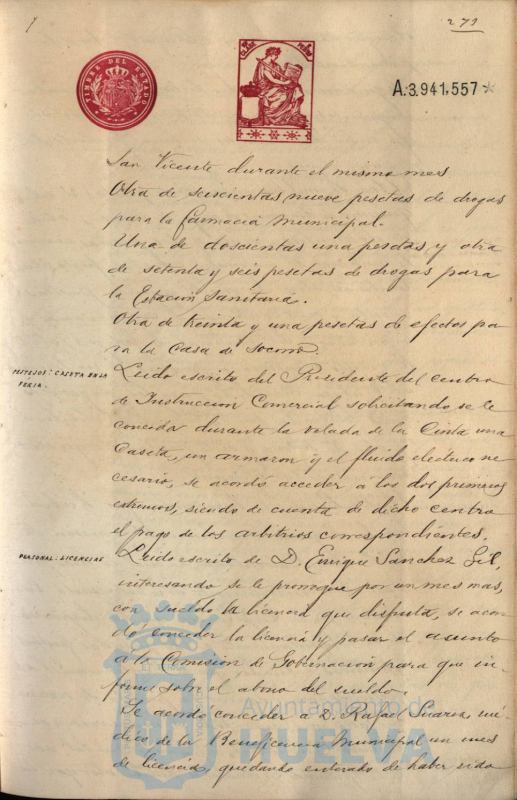 279
TIMBRE DEL ESTADO
A.3.941,557*
San Vicente durante el mismo mes
Otra de seiscientas nueve pesetas de drogas
para la farmacia municipal.
Una de doscientas una pesetas y otra
de setenta y seis pesetas de drogas para
la Estacion Sanitaria.
Otra de treinta y una pesetas de efectos pa
ra la Casa de Socorro.
FESTEJOS: CASETA EN LA
FERIA.
Leido escrito del Presidente del centro
de Instruccion Comercial solicitando se le
conceda durante la Velada de la Cinta una
Caseta, un armaron y el fluido electrico ne
cesario, se acordó acceder á los dos primeros
extremos, siendo de cuenta de dicho centro
el pago de los arbitrios correspondientes.
PERSONAL: LICENCIAS
Leido escrito de D. Enrique Sanchez Gil,
interesando se le prorrogue por un mes mas,
con sueldo la licencia que disfruta, se acor
dó conceder la licencia y pasar el asunto
a la Comision de Gobernacion para que in
forme sobre el abono del sueldo.
Se acordó conceder a D. Rafael Suarez, mé
dico de la Beneficencia Municipal un mes
de licencia, quedando enterado de haber sido
Ayuntamiento de
HUELVA